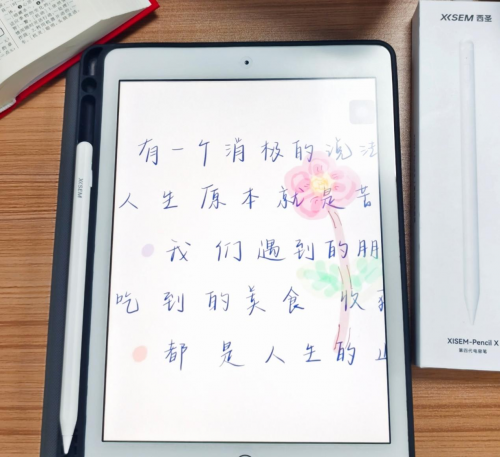 XISEM 西圣
有一个消极的说法
人生原本就是苦
我们遇到的朋
吃到的美食 收
都是人生的
XISEM
XISEM-Pencil X